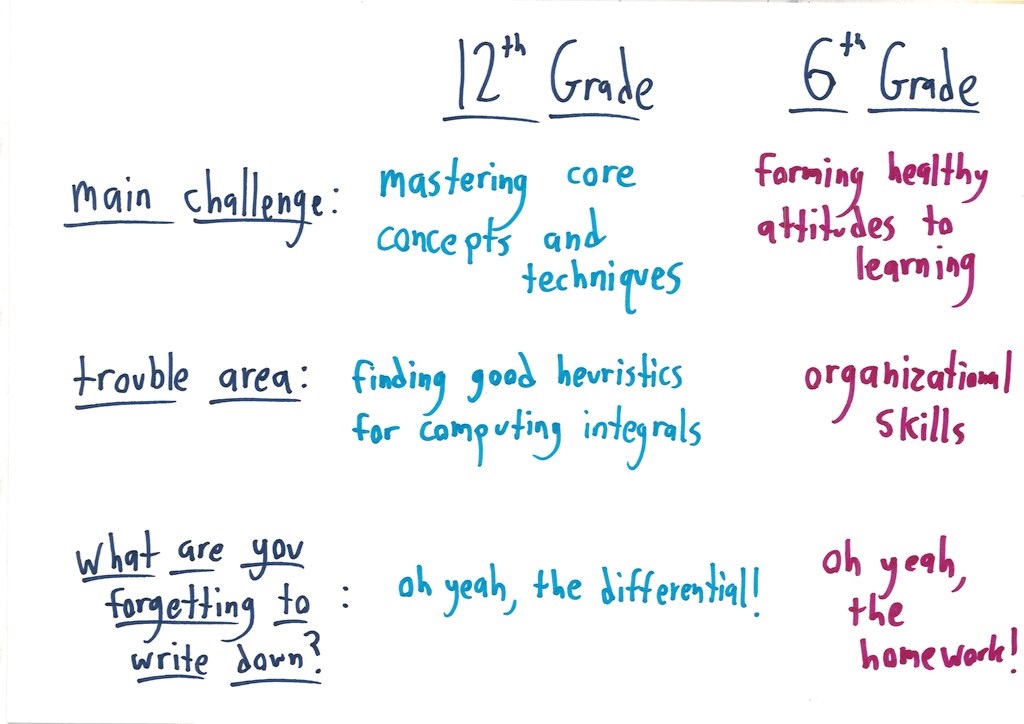 12th Grade 6th Grade
main challenge: mastering core concepts and techniques forming healthy attitudes to learning
trouble area: finding good heuristics for computing integrals organizational skills
what are you forgetting to write down?: oh yeah, the differential! oh yeah, the homework!